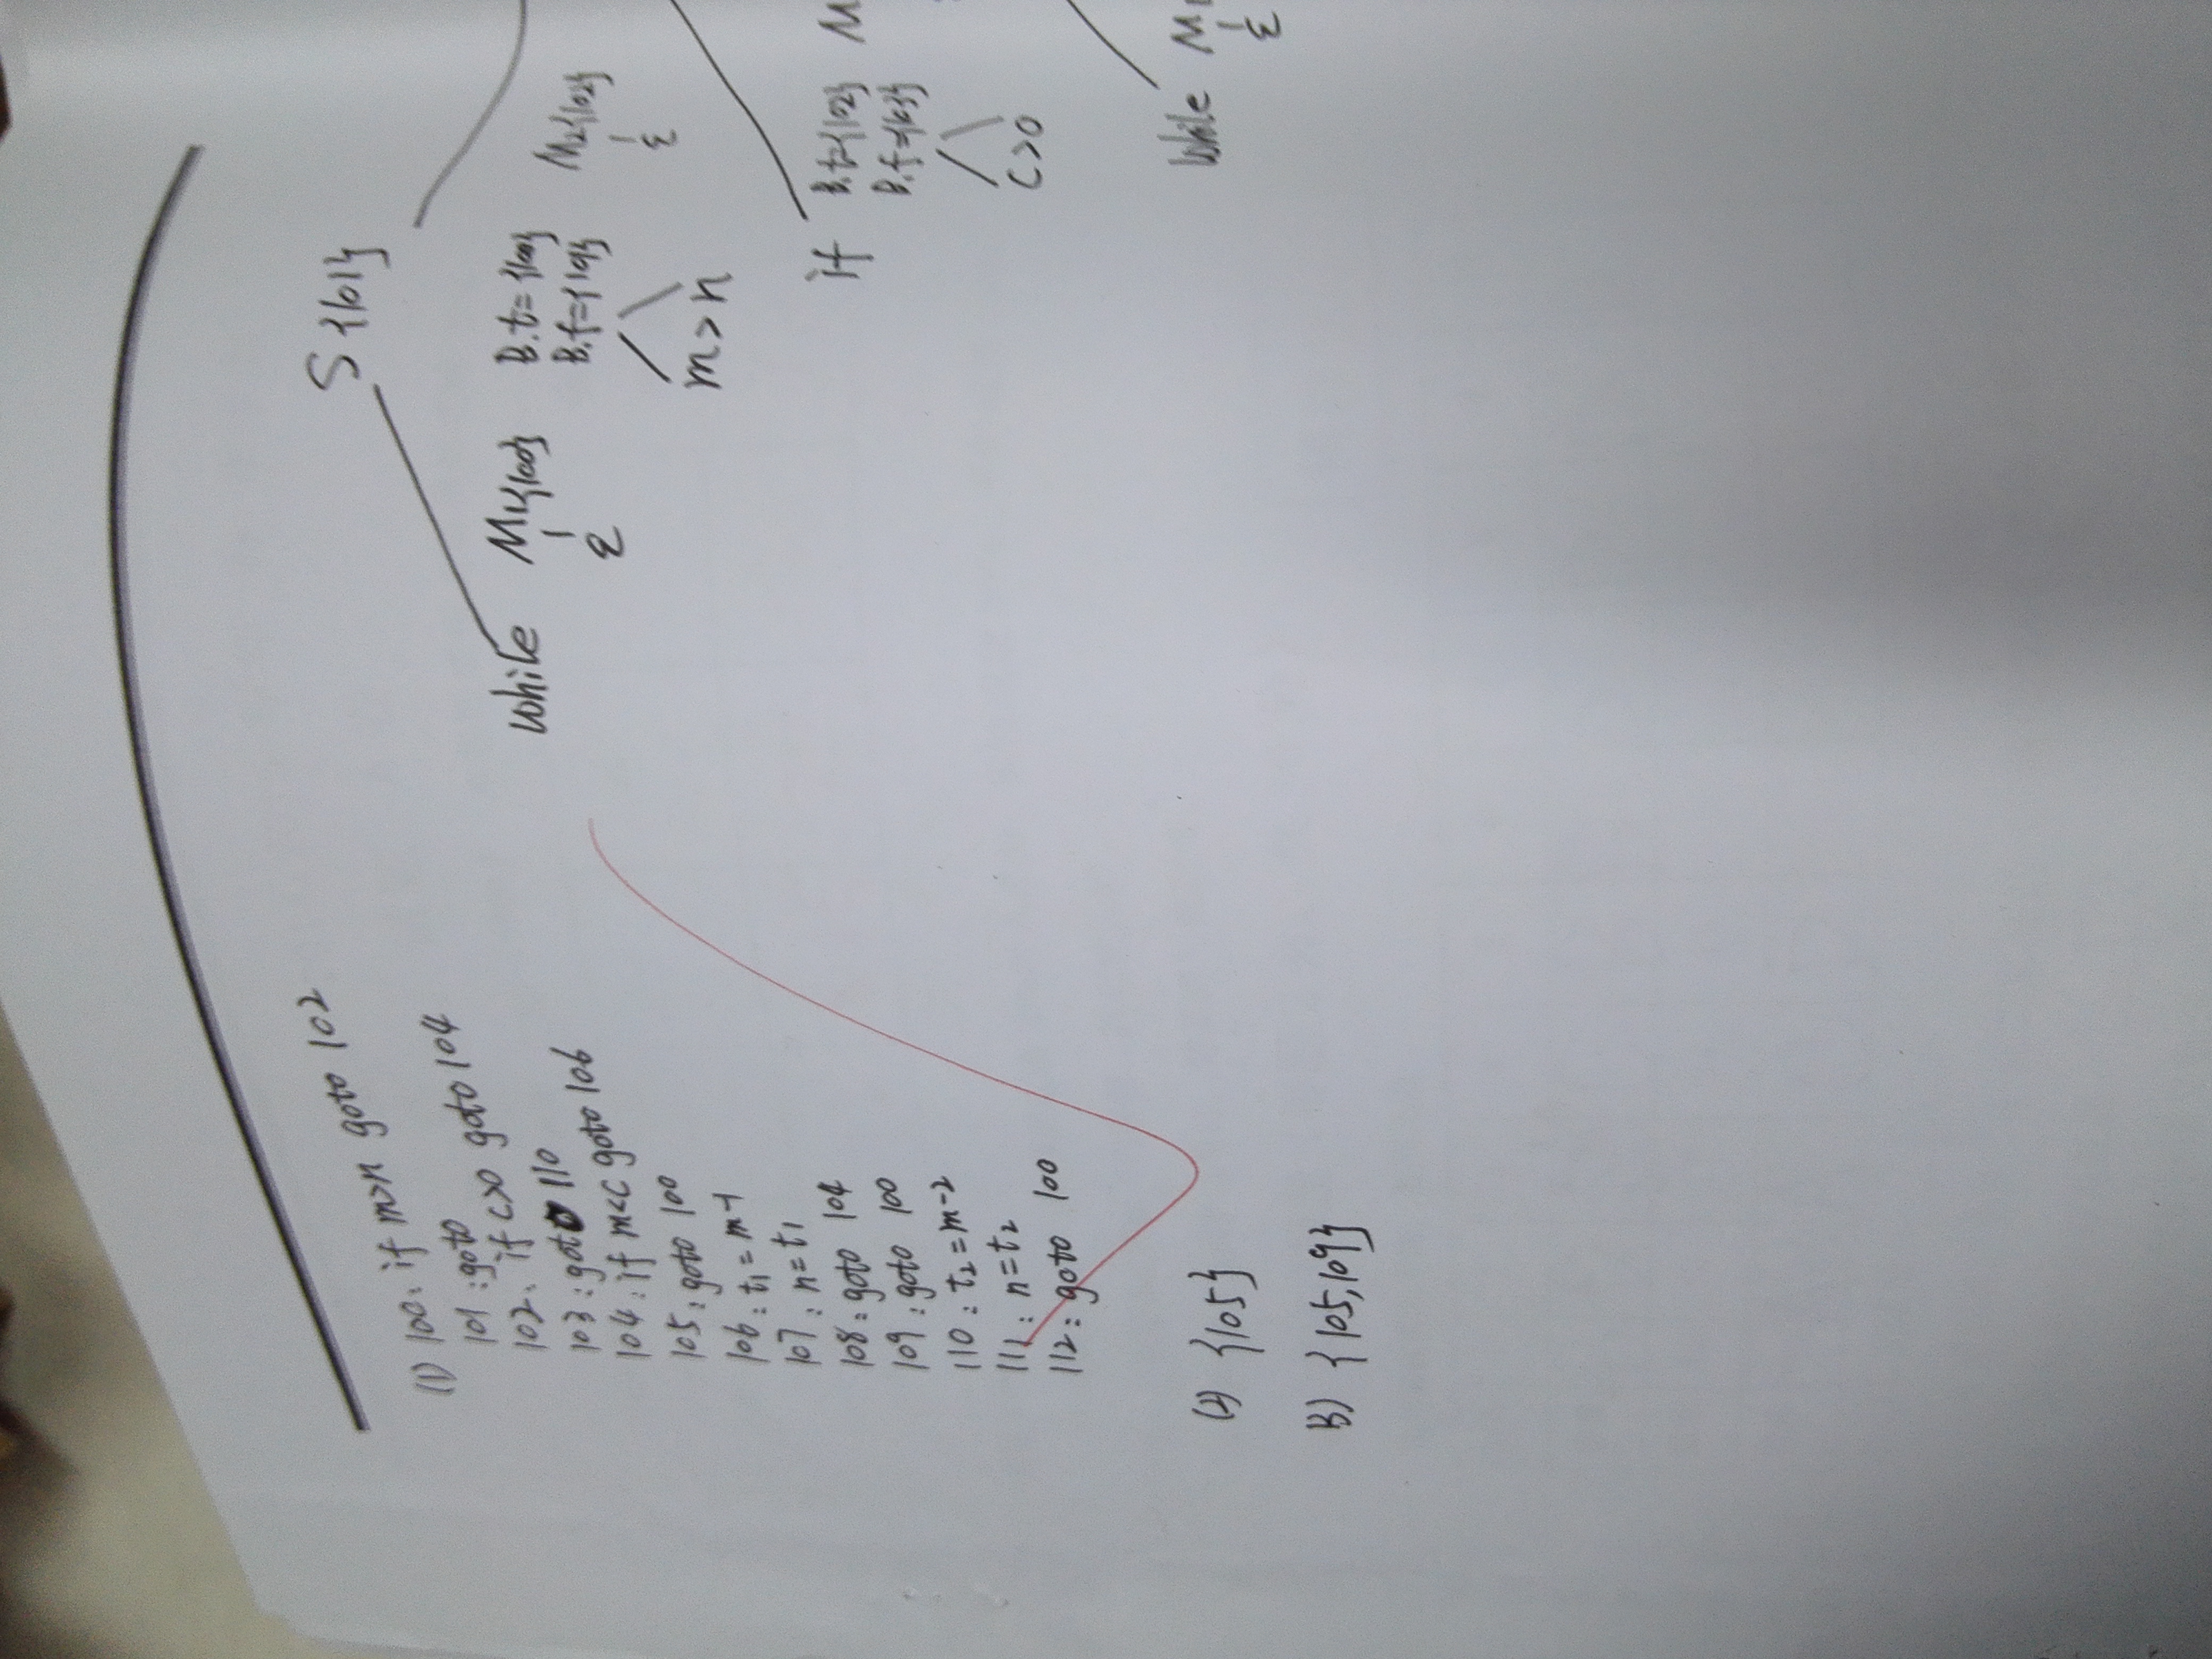 (1) 100: if m>n goto 102
101: goto
102: if c>0 goto 104
103: goto 110
104: if m<c goto 106
105: goto 100
106: t₁=m-1
107: n=t₁
108: goto 104
109: goto 100
110: t₂=m-2
111: n=t₂
112: goto 100
(2) {105}
(3) {105,109}
S{101}
while M₁{100} B.t={100} M₂{102}
ε B.f={101} ε
m>n
if B.t={102} M
B.f={103}
c>0
while M₁
ε